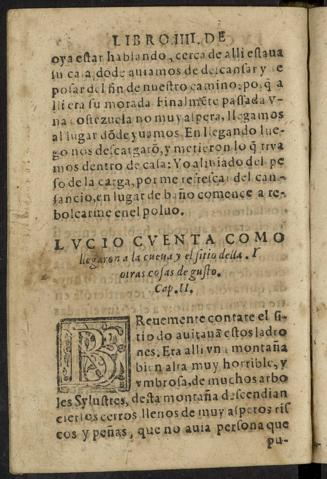 LIBRO IIII. DE
oya estar hablando, cerca de alli estaua
su casa, dõde auiamos de descansar y re
posar del fin de nuestro camino: porq̃ a
lli era su morada. Finalmẽte passada v-
na costezuela no muy aspera, llegamos
al lugar dõde yuamos. En llegando lue-
go nos descargarõ, y metieron lo q̃ trya
mos dentro de casa: Yo aliuiado del pe
so de la carga, por me refrescar del can-
sancio, en lugar de baño comence a re-
bolcarme en el poluo.
LVCIO CVENTA COMO
llegaron a la cueua y el sitio della. Y
otras cosas de gusto.
Cap. II.
BReuemente contare el si-
tio do auitauã estos ladro
nes, Era alli vna montaña
bien alta muy horrible, y
vmbrosa, de muchos arbo
les Syluestres, desta montaña descendian
ciertos cerros llenos de muy asperos ris
cos y peñas, que no auia persona que
pu-